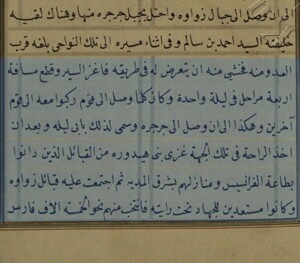 الى ان وصل الى جبال زواوه واحتل بجبل جرجره منها وهناك لقيه
خليفته السيد احمد بن سالم وفى اثناء مسيره الى تلك النواحى بلغه قرب
العدو منه فخشى منه ان يتعرض له فى طريقه فاغذ السير وقطع مسافة
اربعة مراحل فى ليلة واحدة وكان كلما وصل الى قوم ركبوا معه الى قوم
آخرين وهكذا الى ان وصل الى جرجره وسمى لذلك بان ليله وبعد ان
اخذ الراحة فى تلك الجهة غزى بنى هيدوره من القبائل الذين دانوا
بطاعة الفرانسيس ومنازلهم بشرق المديه ثم اجتمعت عليه قبائل زواوه
وكانوا مستعدين للجهاد تحت رايته فانتخب منهم نحو الخمسة الاف فارس